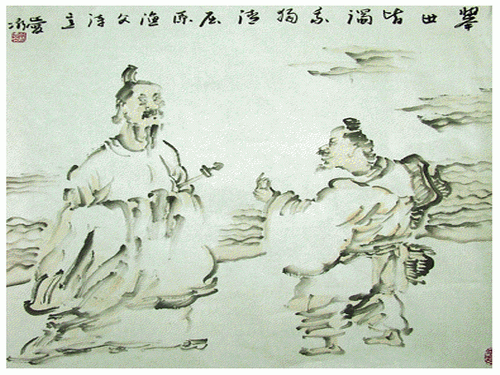 舉世皆濁我獨清屈原漁父詩意